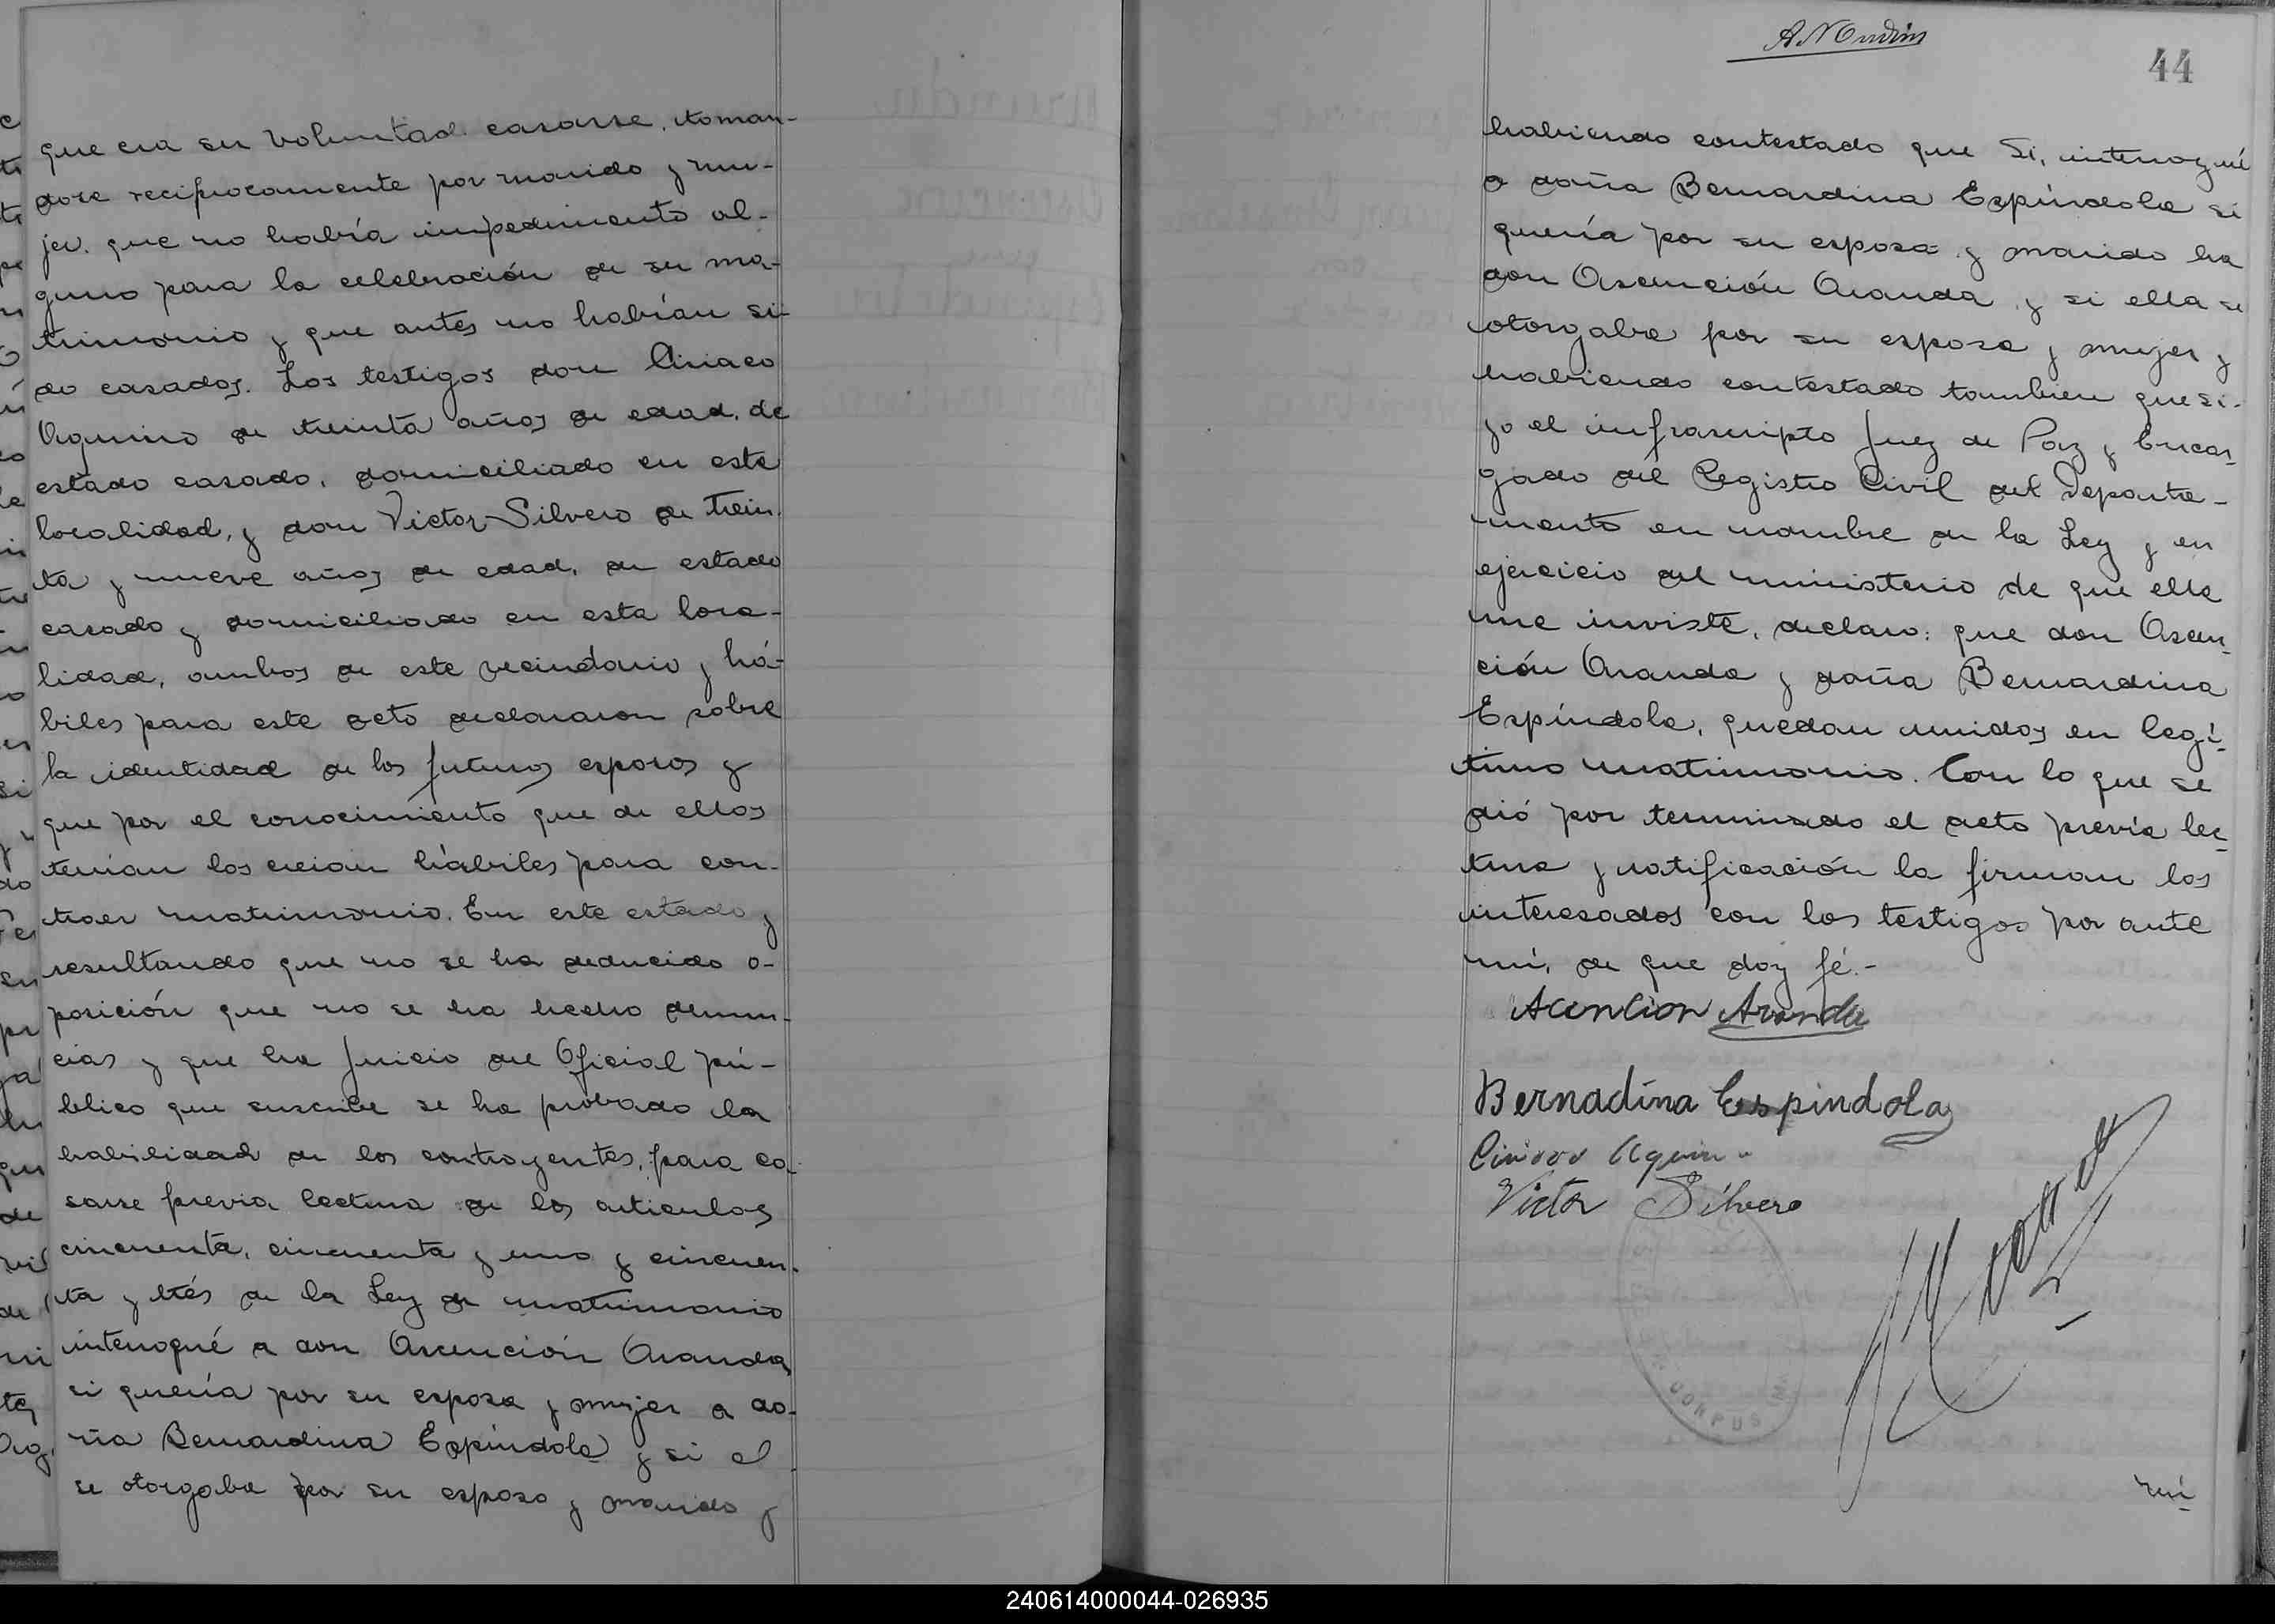 que era su voluntad casarse, toman-
dose reciprocamente por marido y mu-
jer. que no había impedimento al-
guno para la celebración de su ma-
trimonio y que antes no habían si-
do casados. Los testigos don Ciriaco
Aquino de treinta años de edad, de
estado casado, domiciliado en esta
localidad, y don Victor Silvero de trein-
ta y nueve años de edad, de estado
casado y domiciliado en esta loca-
lidad, ambos de este vecindario y há-
biles para este acto declararon sobre
la identidad de los futuros esposos y
que por el conocimiento que de ellos
tenían los creian hábiles para con-
traer matrimonio. En este estado y
resultando que no se ha deducido o-
posición que no se ha hecho denun-
cias y que ha juicio del Oficial pú-
blico que suscribe se ha probado la
habilidad de los contrayentes, para ca-
sarse previa lectura de los articulos
cincuenta, cincuenta y uno y cincuen-
ta y trés de la Ley de matrimonio
interrogué a don Ascención Aranda
si quería por su esposa y mujer a do-
ña Bernardina Espíndola y si el
se otorgaba por su esposo y marido y
44
habiendo contestado que Si, interrogué
a doña Bernardina Espíndola si
quería por su esposo y marido ha
don Ascención Aranda y si ella se
otorgaba por su esposa y mujer y
habiendo contestado tambien que si-
yo el infrascripto Juez de Paz y Encar-
gado del Registro Civil del Departa-
mento en nombre de la Ley y en
ejercicio del ministerio de que ella
me inviste, declaro: que don Ascen-
ción Aranda y doña Bernardina
Espíndola, quedan unidos en legí-
timo matrimonio. Con lo que se
dió por terminado el acto previa lec-
tura y ratificación la firman los
interesados con los testigos por ante
mí, de que doy fé.-
Acencion Aranda
Bernadina Espindola
Ciriaco Aquino
Victor Silvero
CORPUS
mí
240614000044-026935